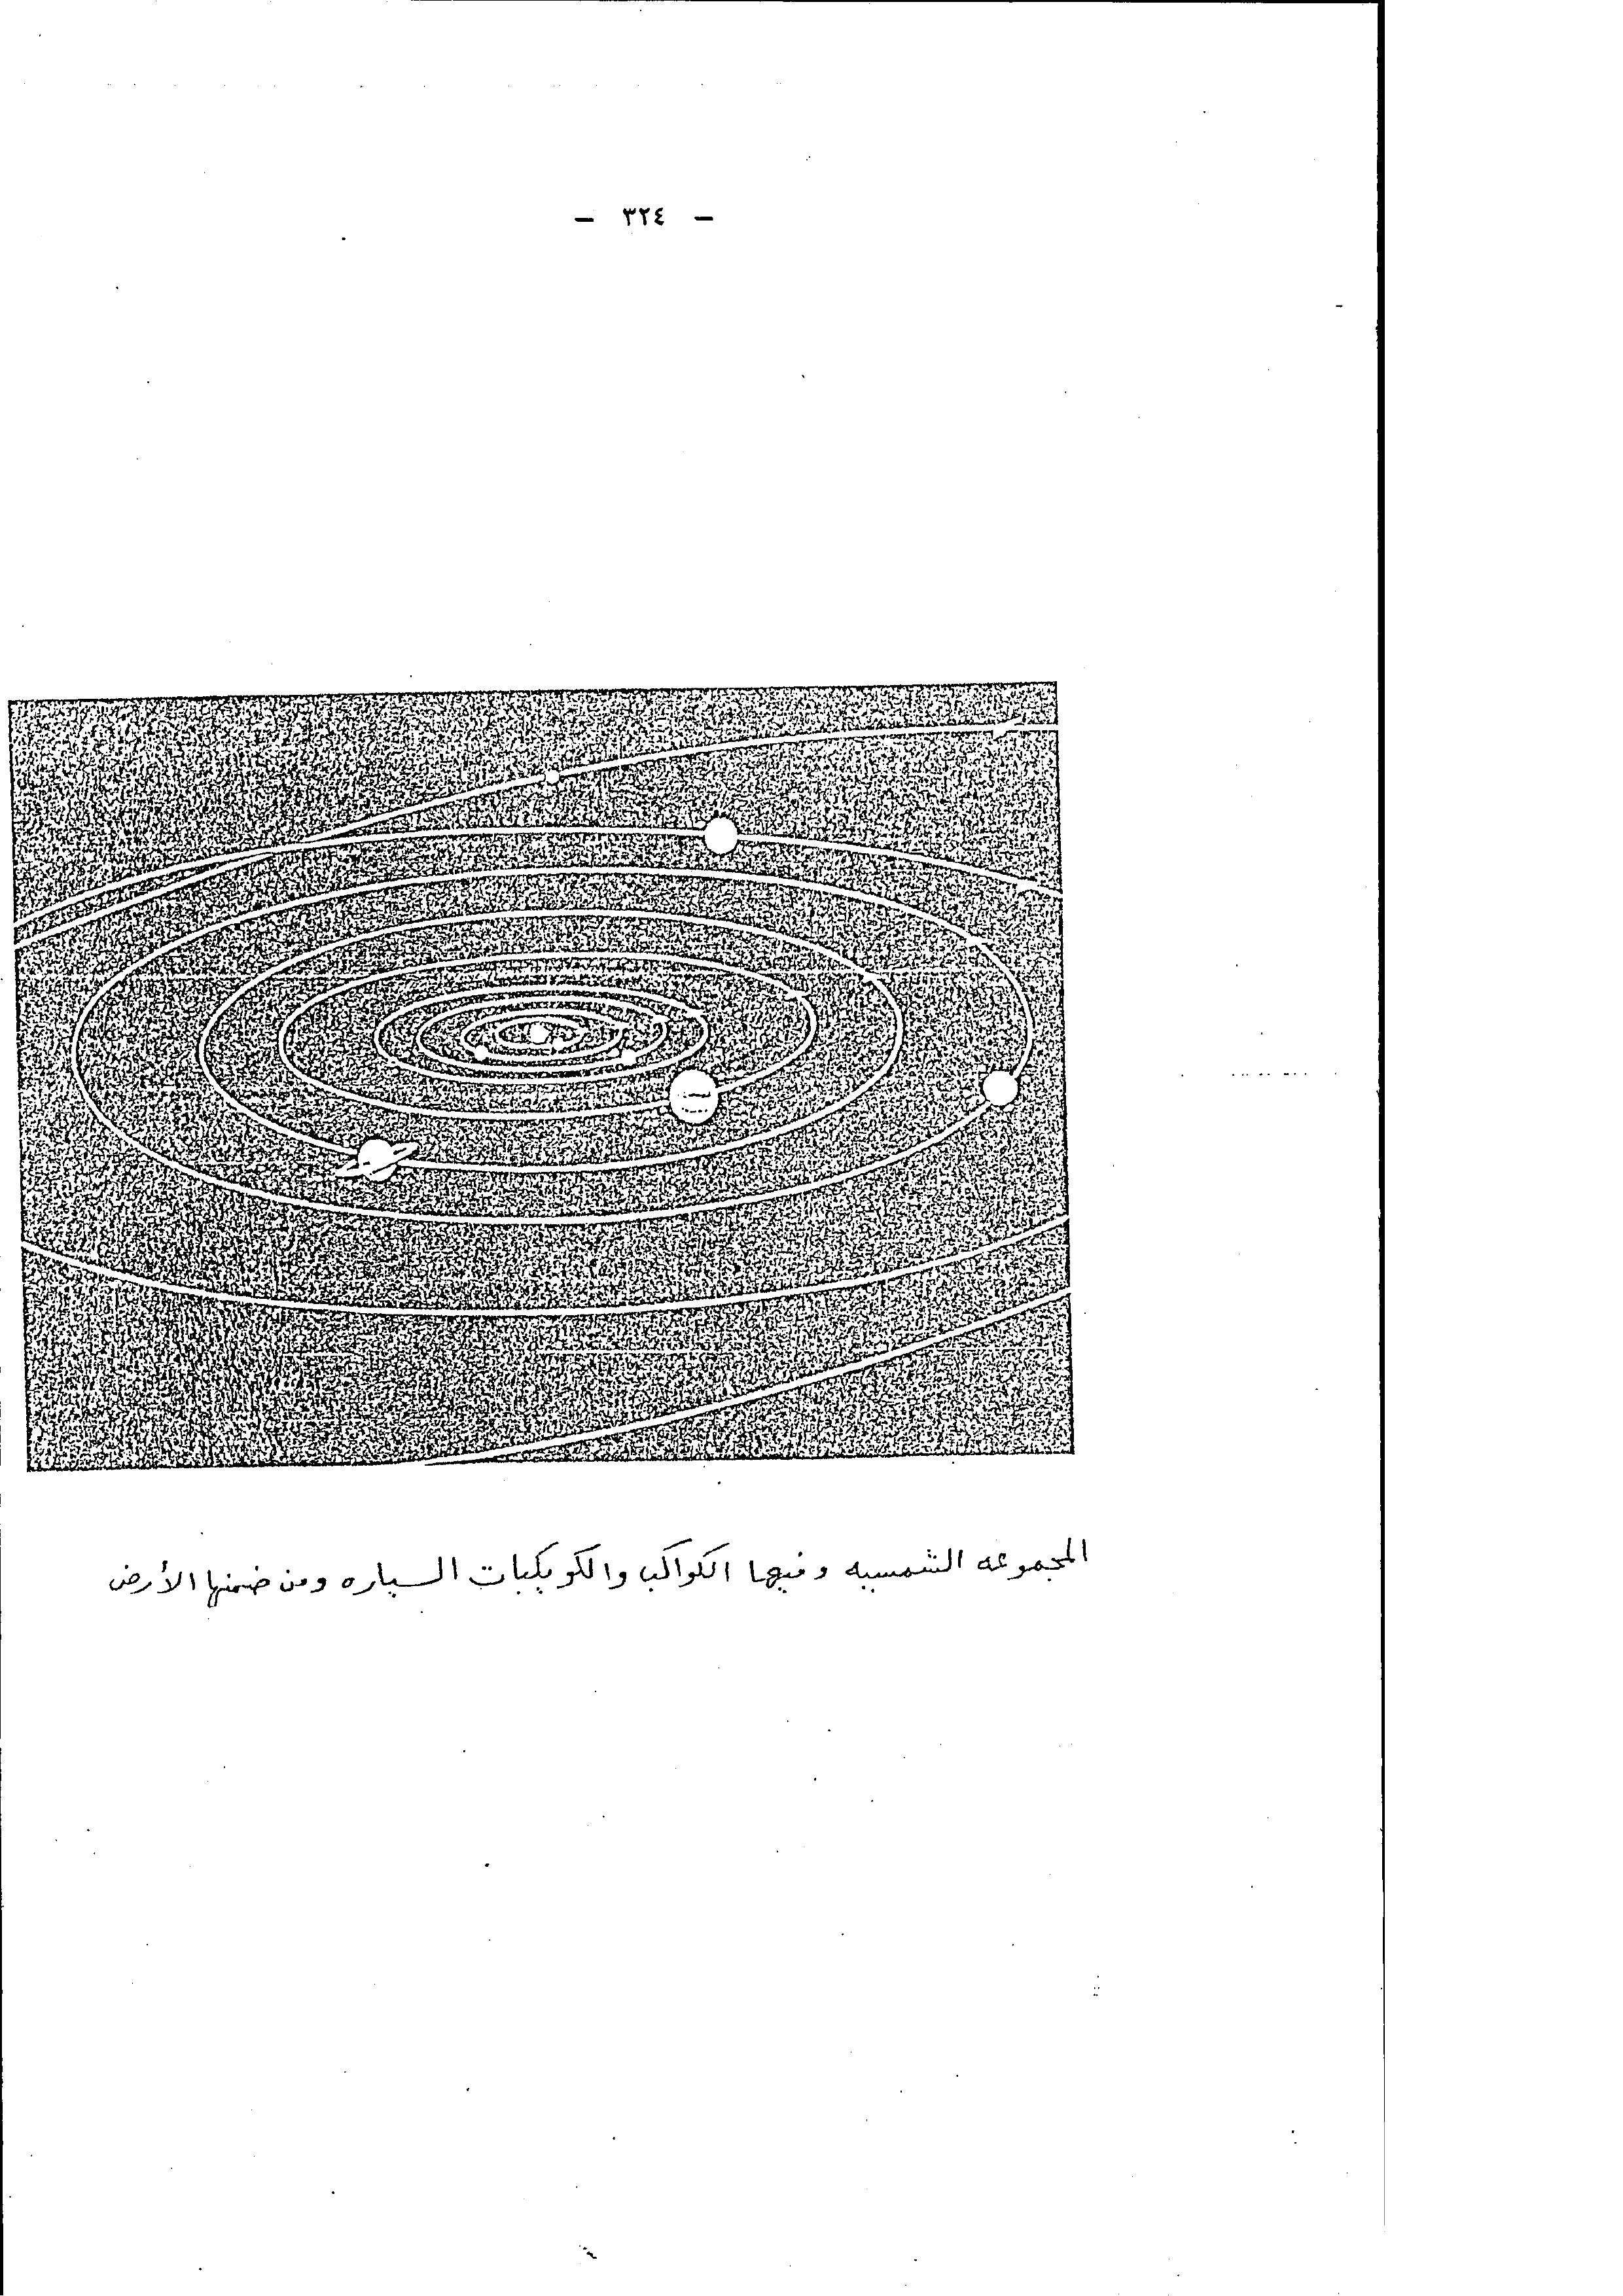 — ٣٢٤ —
المجموعه الشمسيه وفيها الكواكب والكويكبات السياره ومن ضمنها الأرض